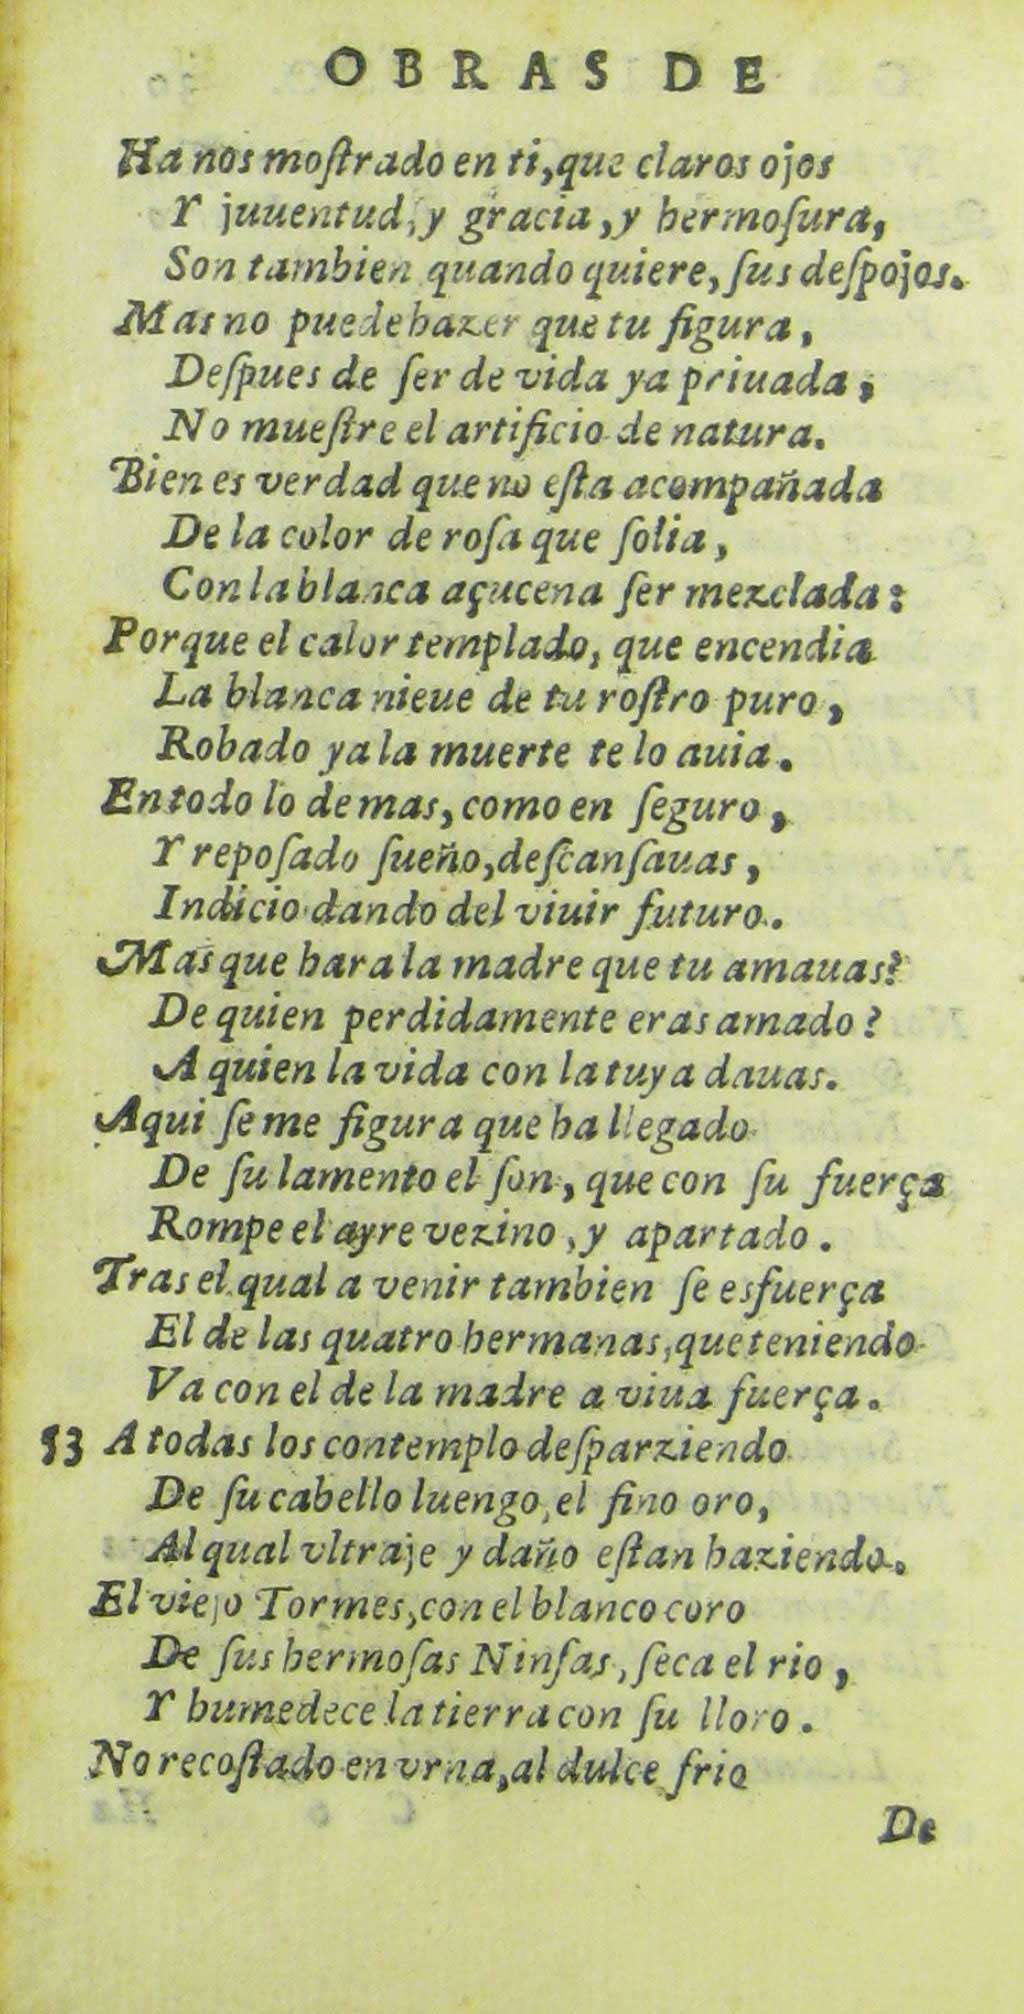 OBRAS DE
Ha nos moſtrado en ti, que claros ojos
Y juuentud, y gracia, y hermoſura,
Son tambien quando quiere, ſus deſpojos.
Mas no puede hazer que tu figura,
Deſpues de ſer de vida ya priuada,
No mueſtre el artificio de natura.
Bien es verdad que no eſta acompañada
De la color de roſa que ſolia,
Con la blanca açucena ſer mezclada:
Porque el calor templado, que encendia
La blanca nieue de tu roſtro puro,
Robado ya la muerte te lo auia.
En todo lo demas, como en ſeguro,
Y repoſado ſueño, deſcanſauas,
Indicio dando del viuir futuro.
Mas que hara la madre que tu amauas?
De quien perdidamente eras amado?
A quien la vida con la tuya dauas.
Aqui ſe me figura que ha llegado
De ſu lamento el ſon, que con ſu fuerça
Rompe el ayre vezino, y apartado.
Tras el qual a venir tambien ſe esfuerça
El de las quatro hermanas, que teniendo
Va con el de la madre a viua fuerça.
53 A todas los contemplo deſparziendo
De ſu cabello luengo, el fino oro,
Al qual vltraje y daño eſtan haziendo.
El viejo Tormes, con el blanco coro
De ſus hermoſas Ninfas, ſeca el rio,
Y humedece la tierra con ſu lloro.
No recoſtado en vrna, al dulce frio
De